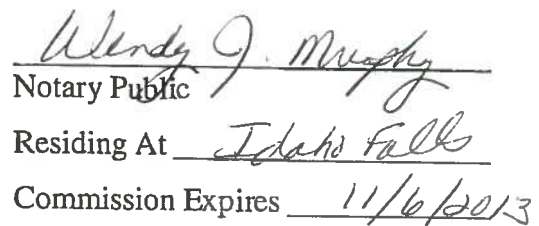 Wendy J. Murphy
Notary Public
Residing At Idaho Falls
Commission Expires 11/6/2013